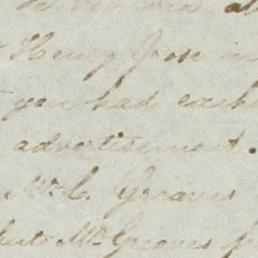 Henry Jose
you had each
advertisement.
Mr. C. Greaves
but Mr. Greaves